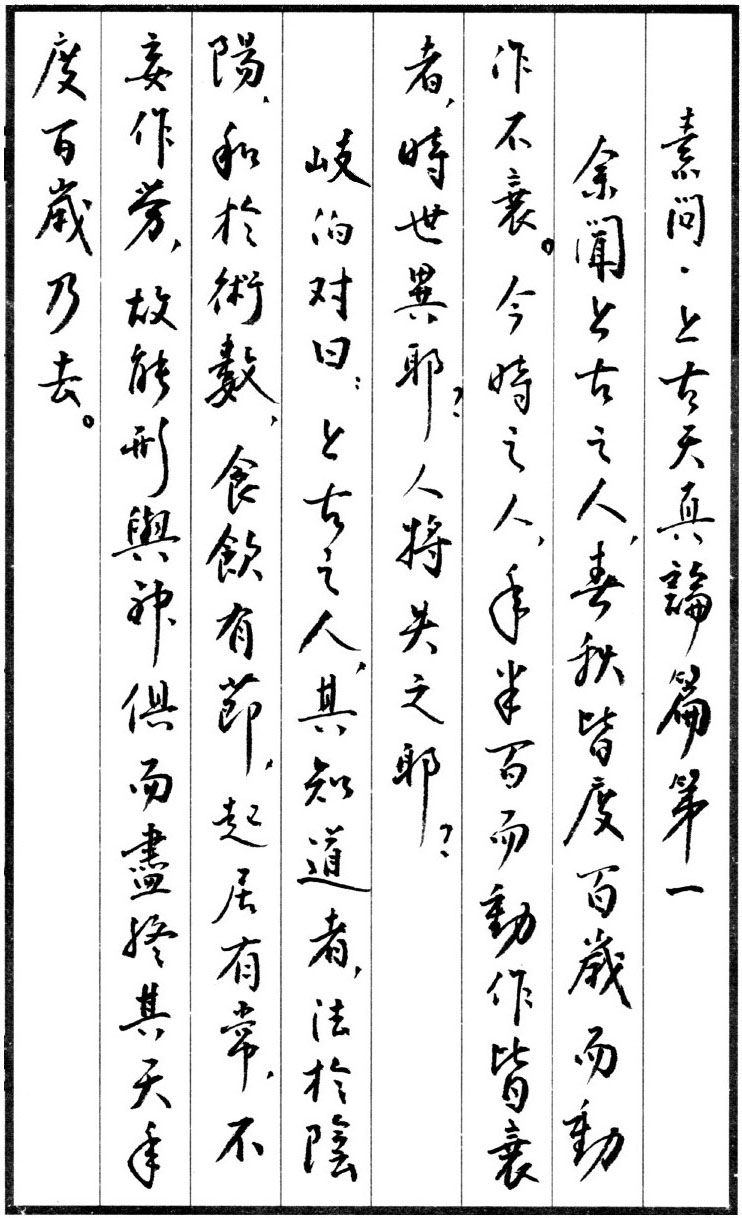 素问·上古天真論篇第一
余闻上古之人,春秋皆度百歲而動
作不衰。今時之人,年半百而動作皆衰
者,時世異耶?人將失之耶?
岐伯对曰:上古之人,其知道者,法於陰
陽,和於術數,食飲有節,起居有常,不
妄作勞,故能形與神俱而盡終其天年
度百歲乃去。